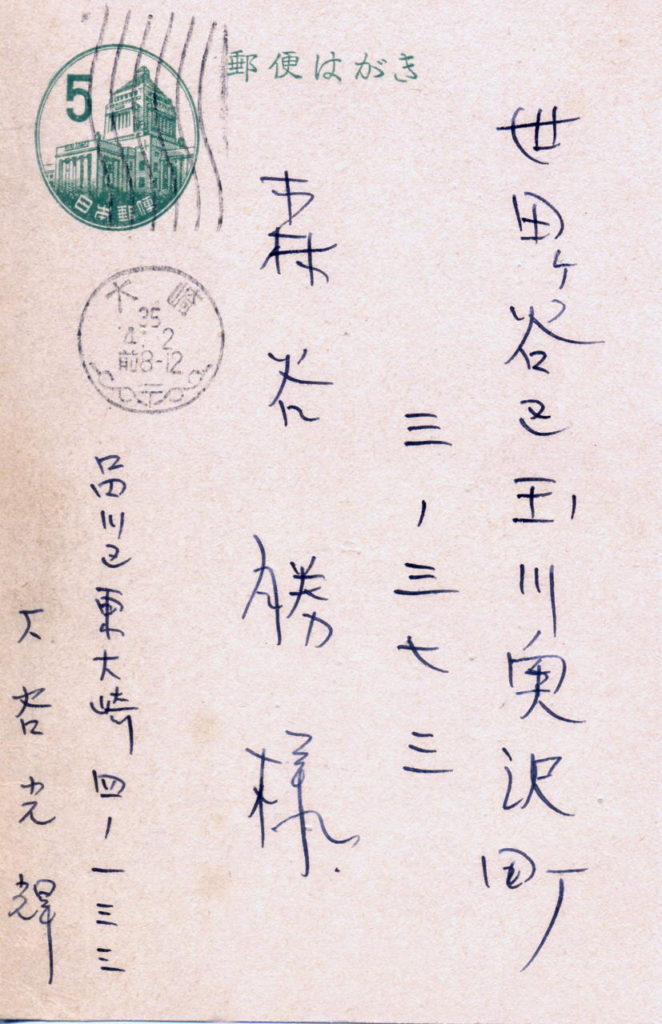 郵便はがき
5
日本郵便
大崎
35
4.-2
前8-12
世田ヶ谷区玉川奥沢町
三-三七三
森谷勝様
品川区東大崎四-一三三
谷光輝